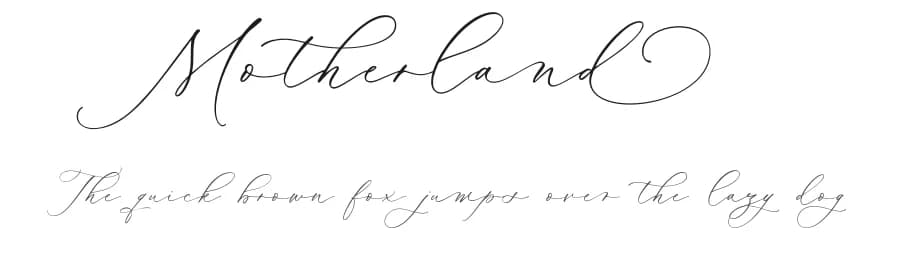 Motherland
The quick brown fox jumps over the lazy dog